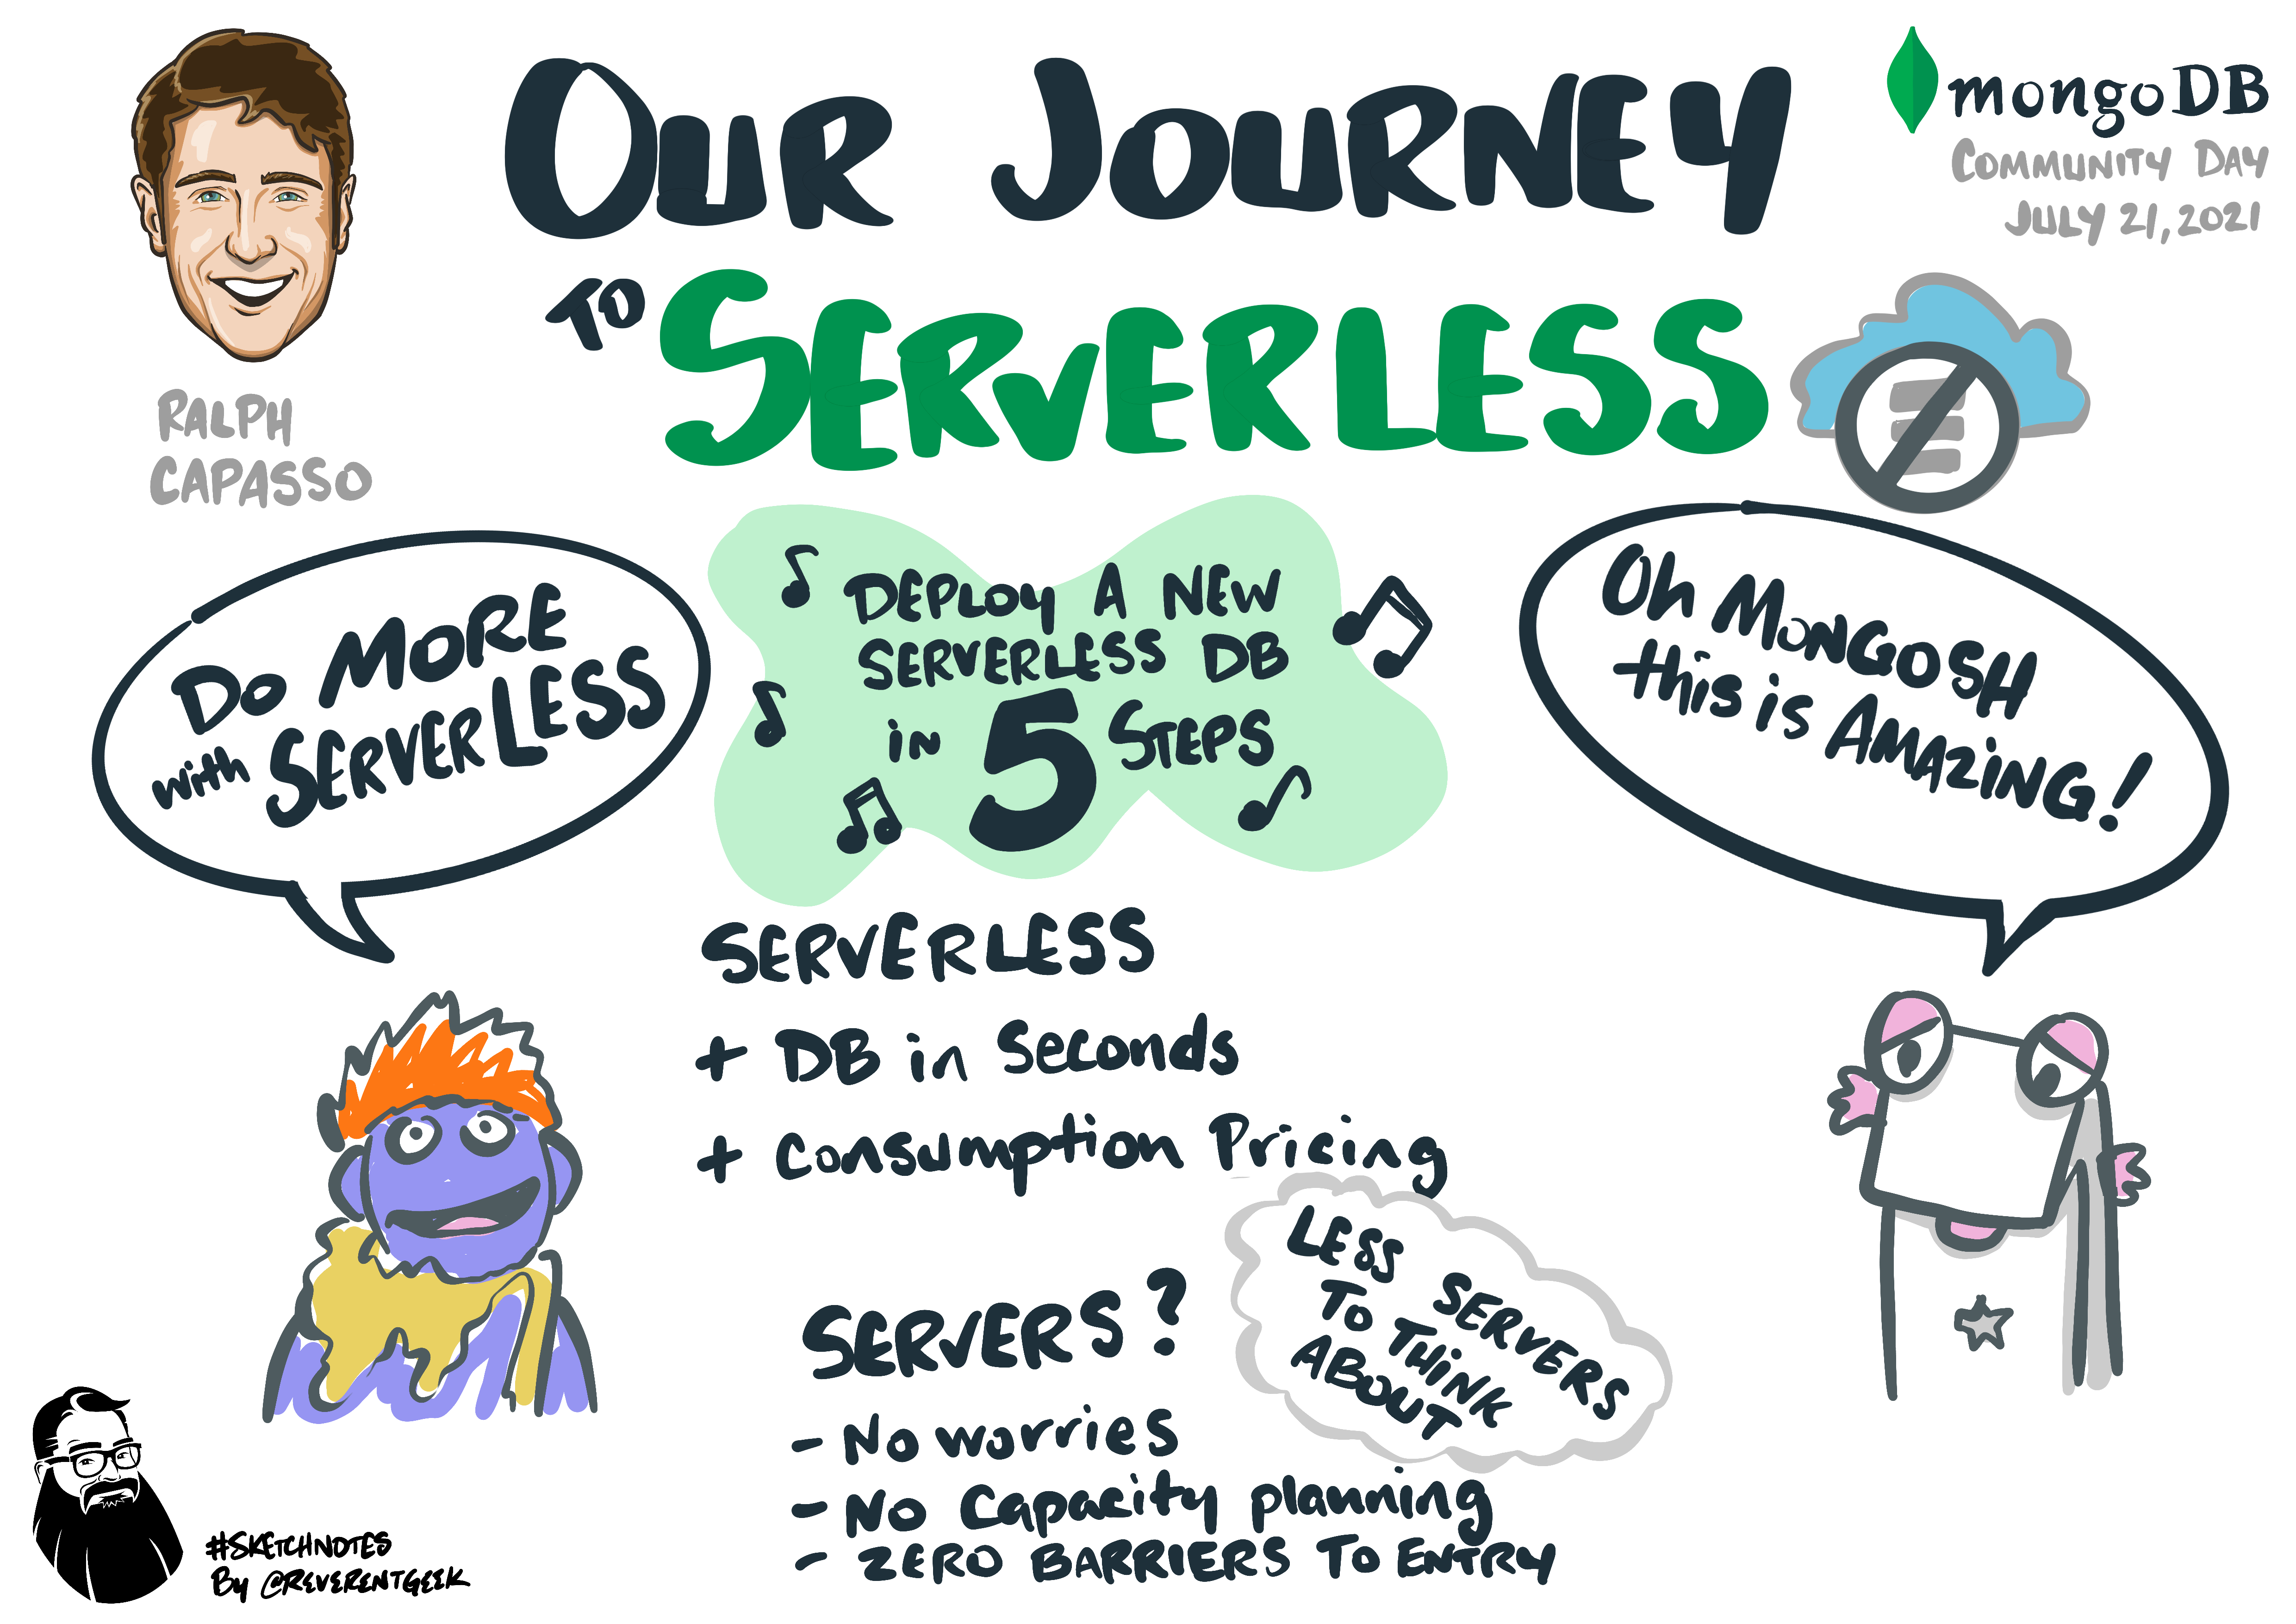 OUR JOURNEY
TO SERVERLESS
mongoDB
COMMUNITY DAY
JULY 21, 2021
RALPH
CAPASSO
Do MORE
with SERVERLESS
DEPLOY A NEW
SERVERLESS DB
in 5 STEPS
Oh MONGOSH
this is AMAZiNG!
SERVERLESS
+ DB in Seconds
+ Consumption Pricing
LESS SERVERS
TO THiNK
ABOUT
SERVERS?
- No worries
- No Capacity planning
- ZERO BARRIERS TO ENTRY
#SKETCHNOTES
By @REVERENTGEEK